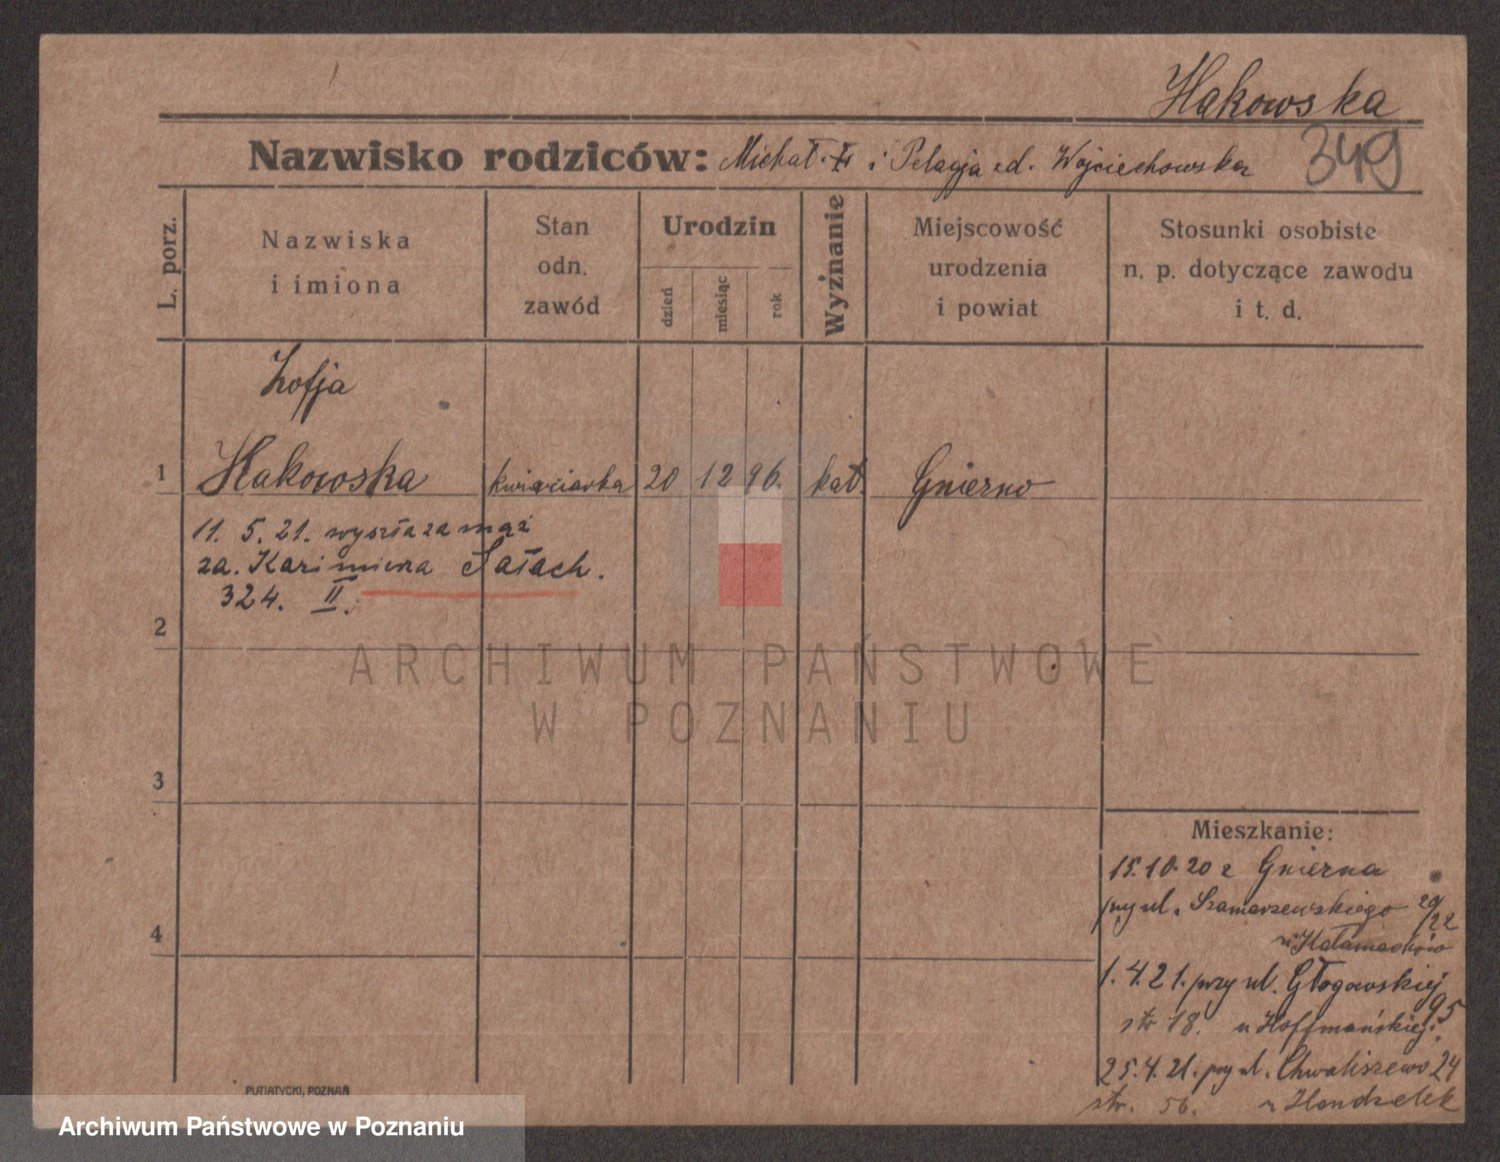 Hakowska
349
Nazwisko rodziców: Michał i Pelagja zd. Wojciechowska
L. porz.
Nazwiska i imiona
Stan odn. zawód
Urodzin
dzień
miesiąc
rok
Wyżnanie
Miejscowość urodzenia i powiat
Stosunki osobiste n. p. dotyczące zawodu i t. d.
Zofja
1 Hakowska kwiaciarka 20 12 96. kat. Gniezno
11. 5. 21. wyszła za mąż
za. Kazimierza Sałach.
324. II.
2
ARCHIWUM PAŃSTWOWE
W POZNANIU
3
4
Mieszkanie:
15.10.20 z Gniezna
przy ul. Szamarzewskiego 20/22
1.4.21. przy ul. Głogowskiej 95
str 18. u Hoffmańskiej.
25.4.21. przy ul. Chwaliszewo 24
str. 56. u Handzelek
PUTIATYCKI, POZNAŃ
Archiwum Państwowe w Poznaniu